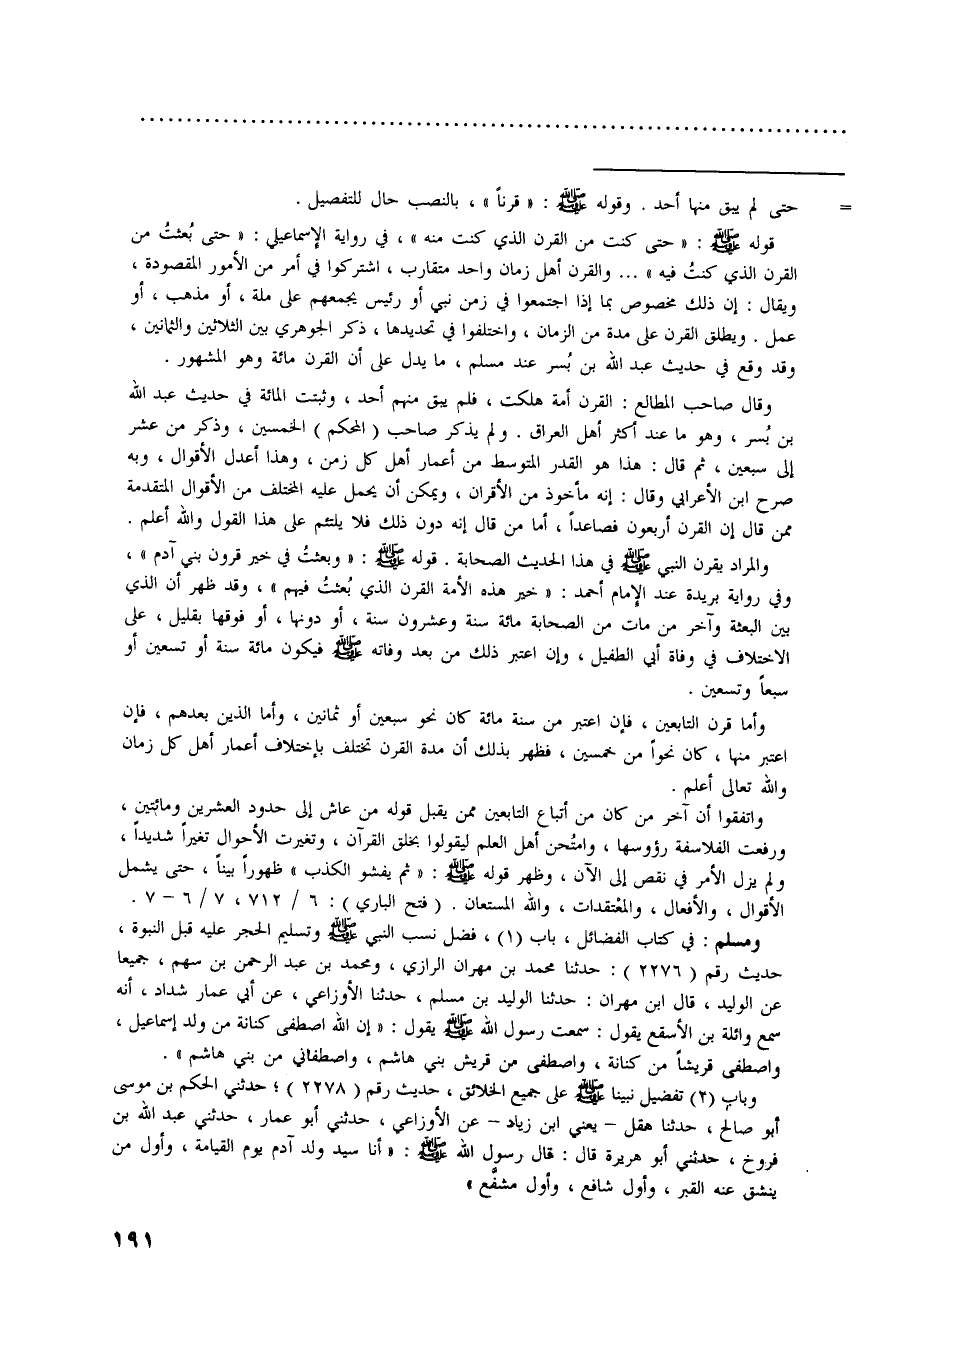 = حتى لم يبق منها أحد . وقوله ﷺ : « قرناً » ، بالنصب حال للتفصيل .
قوله ﷺ : « حتى كنت من القرن الذي كنت منه » ، في رواية الإسماعيلي : « حتى بُعثتُ من
القرن الذي كنتُ فيه » ... والقرن أهل زمان واحد متقارب ، اشتركوا في أمر من الأمور المقصودة ،
ويقال : إن ذلك مخصوص بما إذا اجتمعوا في زمن نبي أو رئيس يجمعهم على ملة ، أو مذهب ، أو
عمل . ويطلق القرن على مدة من الزمان ، واختلفوا في تحديدها ، ذكر الجوهري بين الثلاثين والثمانين ،
وقد وقع في حديث عبد الله بن بُسر عند مسلم ، ما يدل على أن القرن مائة وهو المشهور .
وقال صاحب المطالع : القرن أمة هلكت ، فلم يبق منهم أحد ، وثبتت المائة في حديث عبد الله
بن بُسر ، وهو ما عند أكثر أهل العراق . ولم يذكر صاحب ( المحكم ) الخمسين ، وذكر من عشر
إلى سبعين ، ثم قال : هذا هو القدر المتوسط من أعمار أهل كل زمن ، وهذا أعدل الأقوال ، وبه
صرح ابن الأعرابي وقال : إنه مأخوذ من الأقران ، ويمكن أن يحمل عليه المختلف من الأقوال المتقدمة
ممن قال إن القرن أربعون فصاعداً ، أما من قال إنه دون ذلك فلا يلتئم على هذا القول والله أعلم .
والمراد بقرن النبي ﷺ في هذا الحديث الصحابة . قوله ﷺ : « وبعثتُ في خير قرون بني آدم » ،
وفي رواية بريدة عند الإمام أحمد : « خير هذه الأمة القرن الذي بُعثتُ فيهم » ، وقد ظهر أن الذي
بين البعثة وآخر من مات من الصحابة مائة سنة وعشرون سنة ، أو دونها ، أو فوقها بقليل ، على
الاختلاف في وفاة أبي الطفيل ، وإن اعتبر ذلك من بعد وفاته ﷺ فيكون مائة سنة أو تسعين أو
سبعاً وتسعين .
وأما قرن التابعين ، فإن اعتبر من سنة مائة كان نحو سبعين أو ثمانين ، وأما الذين بعدهم ، فإن
اعتبر منها ، كان نحواً من خمسين ، فظهر بذلك أن مدة القرن تختلف بإختلاف أعمار أهل كل زمان
والله تعالى أعلم .
واتفقوا أن آخر من كان من أتباع التابعين ممن يقبل قوله من عاش إلى حدود العشرين ومائتين ،
ورفعت الفلاسفة رؤوسها ، وامتُحن أهل العلم ليقولوا بخلق القرآن ، وتغيرت الأحوال تغيراً شديداً ،
ولم يزل الأمر في نقص إلى الآن ، وظهر قوله ﷺ : « ثم يفشو الكذب » ظهوراً بيناً ، حتى يشمل
الأقوال ، والأفعال ، والمعْتقدات ، والله المستعان . ( فتح الباري ) : ٦ / ٧١٢ ، ٧ / ٦ – ٧ .
ومسلم : في كتاب الفضائل ، باب (١) ، فضل نسب النبي ﷺ وتسليم الحجر عليه قبل النبوة ،
حديث رقم ( ٢٢٧٦ ) : حدثنا محمد بن مهران الرازي ، ومحمد بن عبد الرحمن بن سهم ، جميعا
عن الوليد ، قال ابن مهران : حدثنا الوليد بن مسلم ، حدثنا الأوزاعي ، عن أبي عمار شداد ، أنه
سمع واثلة بن الأسقع يقول : سمعت رسول الله ﷺ يقول : « إن الله اصطفى كنانة من ولد إسماعيل ،
واصطفى قريشاً من كنانة ، واصطفى من قريش بني هاشم ، واصطفاني من بني هاشم » .
وباب (٢) تفضيل نبينا ﷺ على جميع الخلائق ، حديث رقم ( ٢٢٧٨ ) ؛ حدثني الحكم بن موسى
أبو صالح ، حدثنا هقل – يعني ابن زياد – عن الأوزاعي ، حدثني أبو عمار ، حدثني عبد الله بن
فروخ ، حدثني أبو هريرة قال : قال رسول الله ﷺ : « أنا سيد ولد آدم يوم القيامة ، وأول من
ينشق عنه القبر ، وأول شافع ، وأول مشفَّع »
١٩١